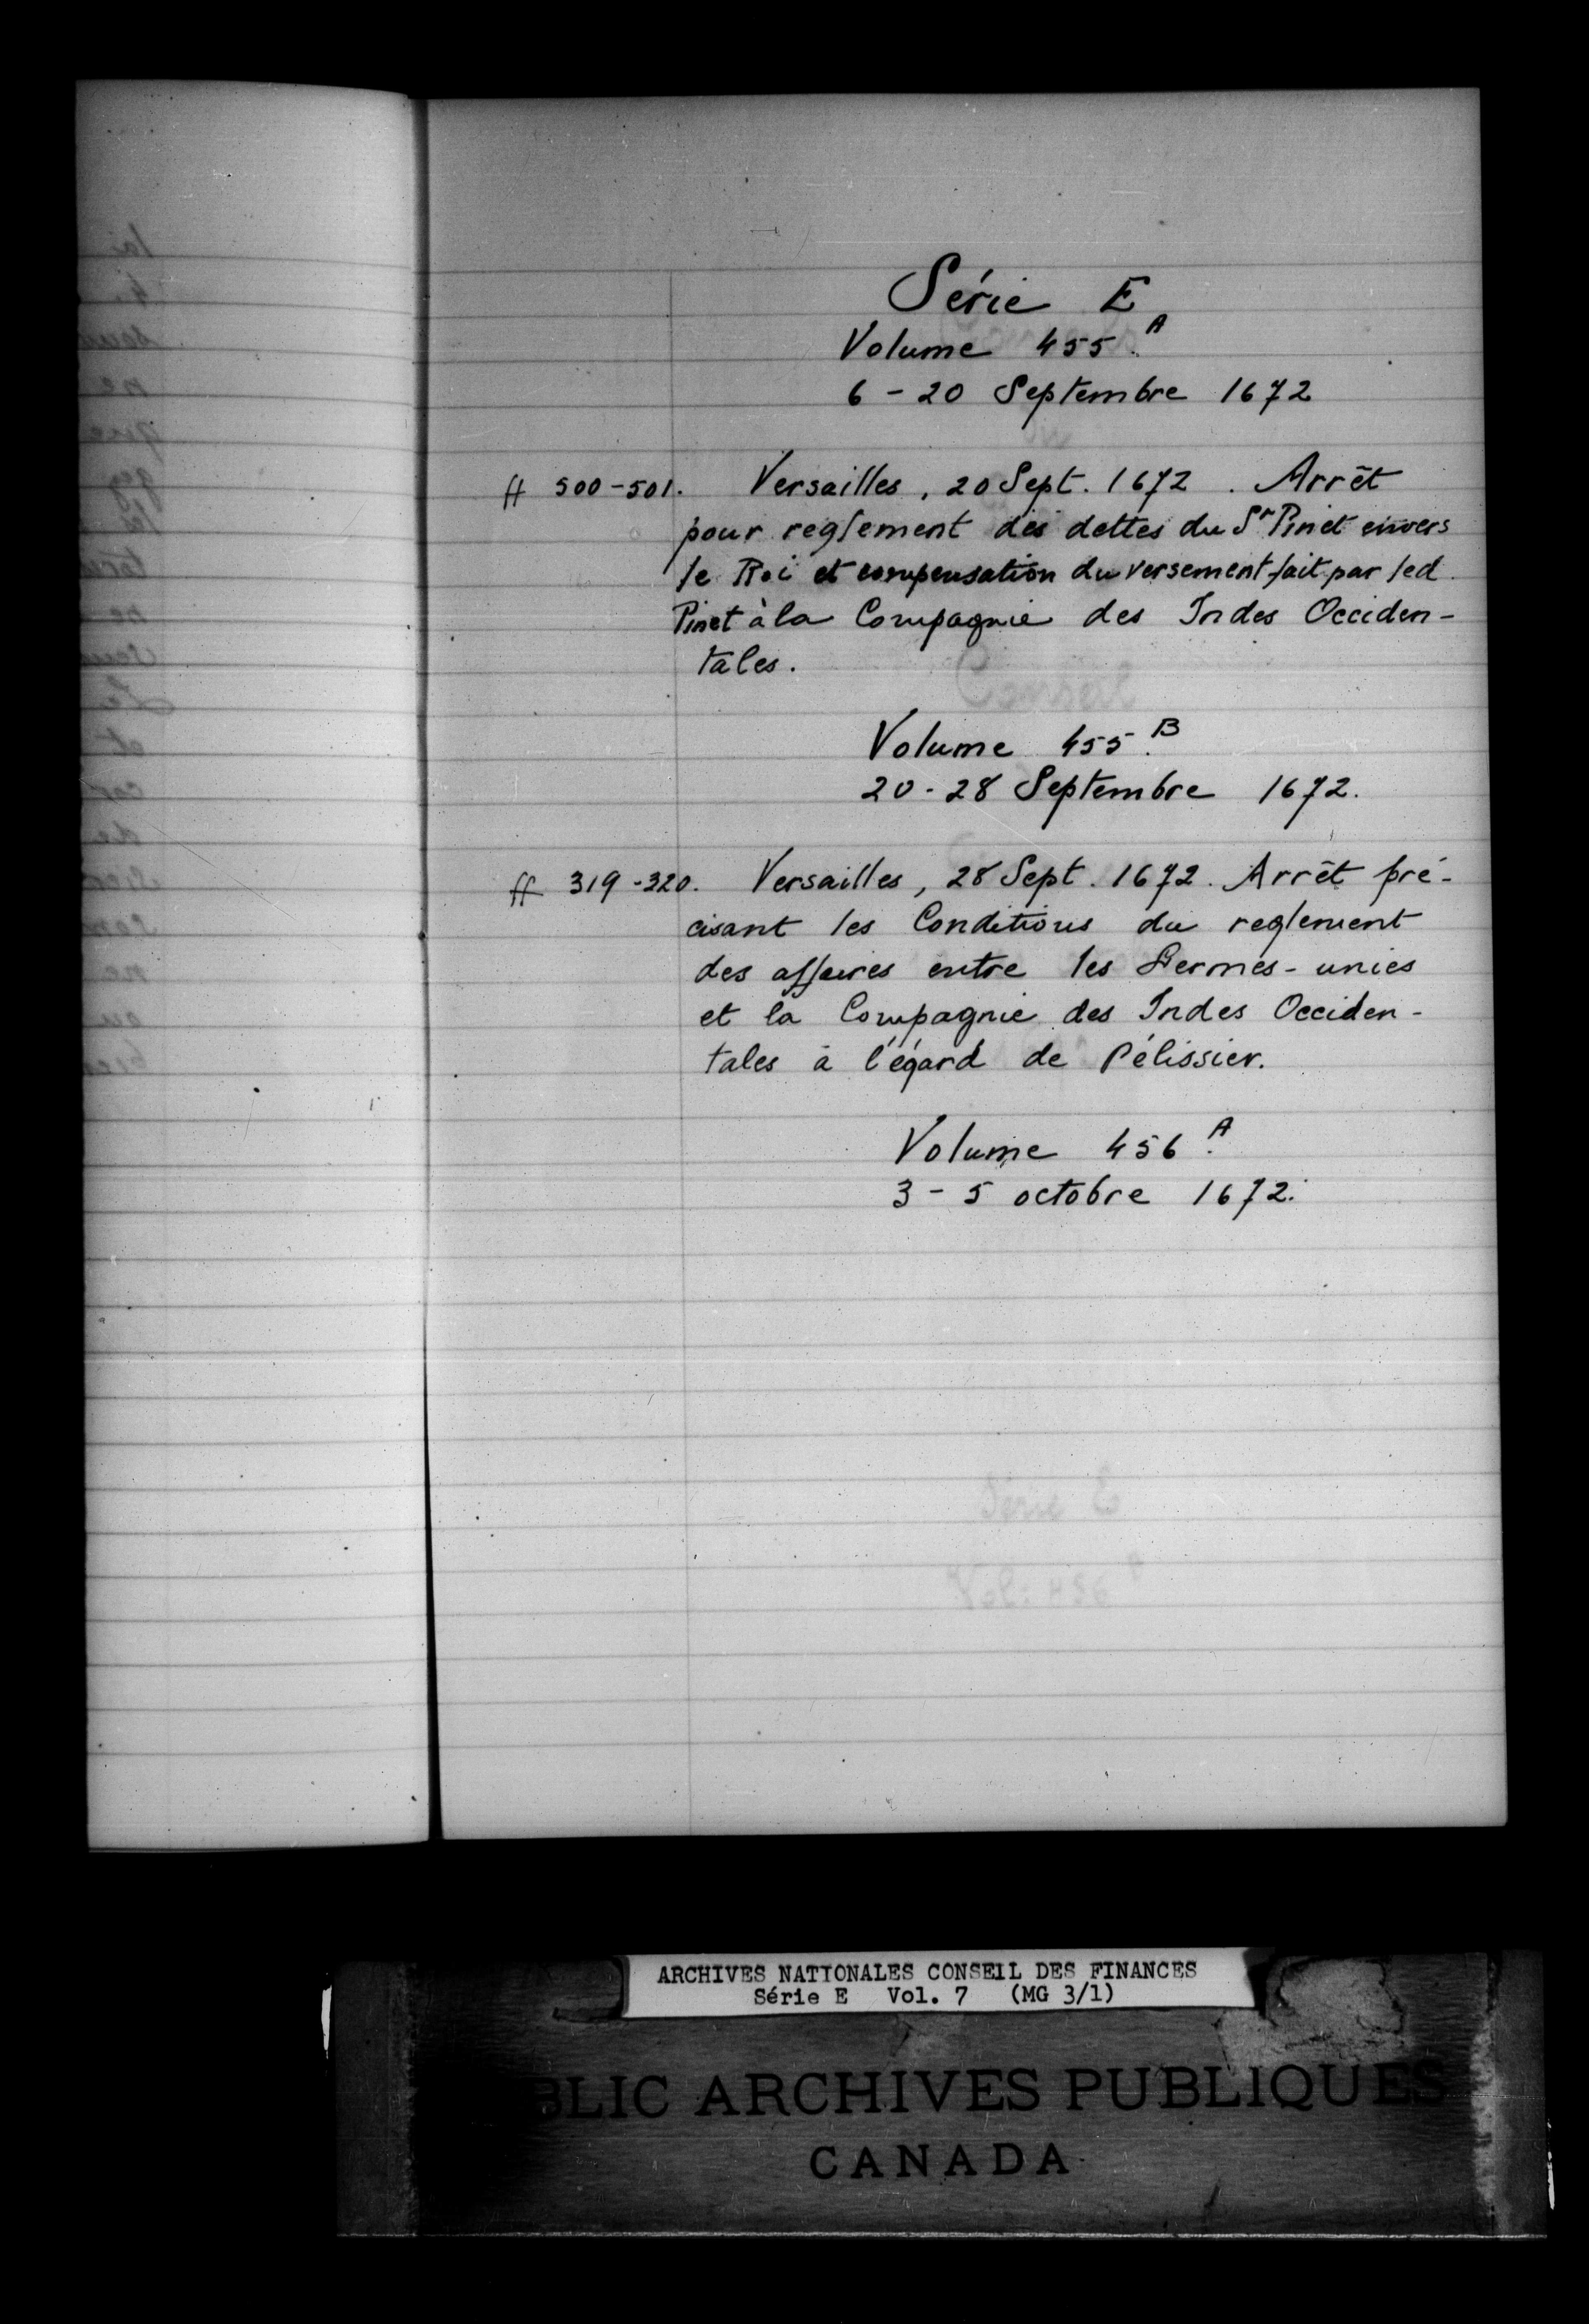 Série E
Volume 455.A
6 - 20 Septembre 1672
ff 500-501. Versailles, 20 Sept. 1672. Arrêt
pour reglement des dettes du Sr Pinet envers
le Roi et compensation du versement fait par led.
Pinet à la Compagnie des Indes Occiden-
tales.
Volume 455.B
20-28 Septembre 1672.
ff 319-320. Versailles, 28 Sept. 1672. Arrêt pré-
cisant les Conditions du reglement
des affaires entre les Fermes-unies
et la Compagnie des Indes Occiden-
tales à l'égard de Pélissier.
Volume 456.A
3 - 5 octobre 1672.
ARCHIVES NATIONALES CONSEIL DES FINANCES
Série E Vol. 7 (MG 3/1)
BLIC ARCHIVES PUBLIQUES
CANADA